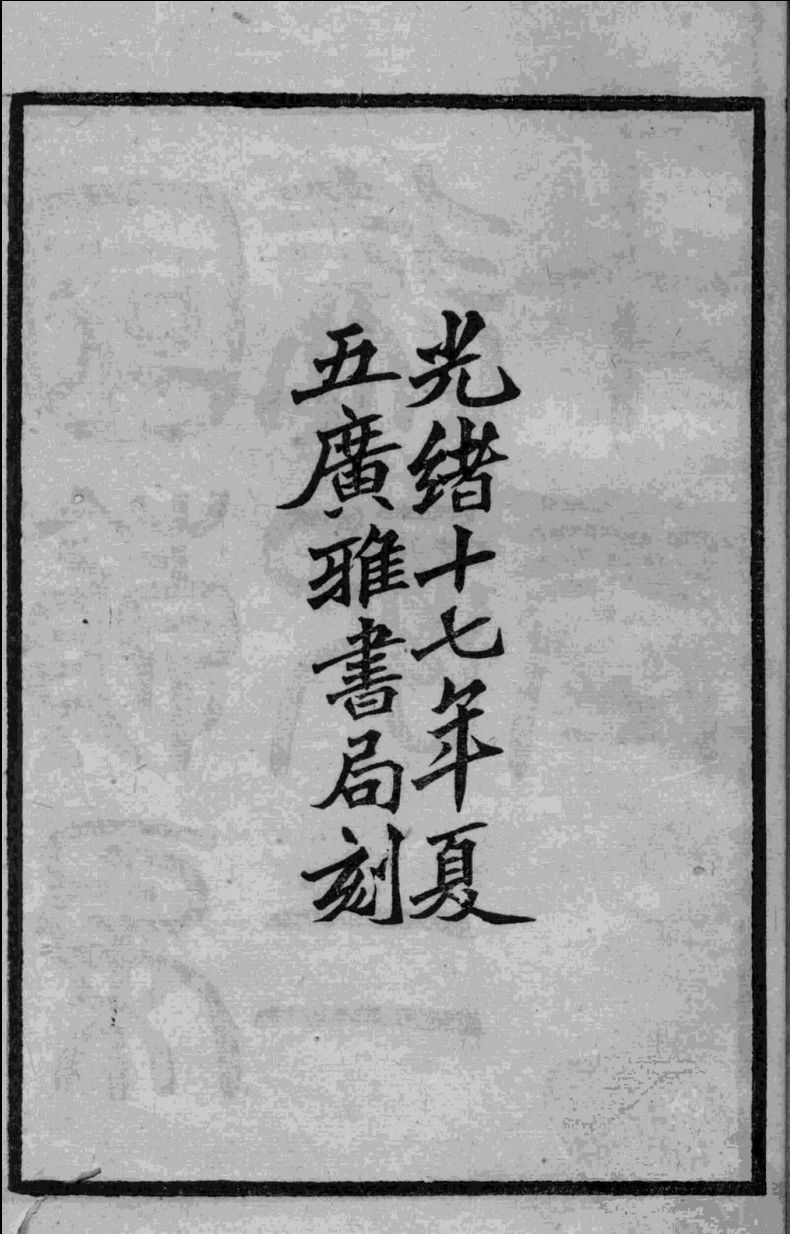 光緒十七年夏
五廣雅書局刻